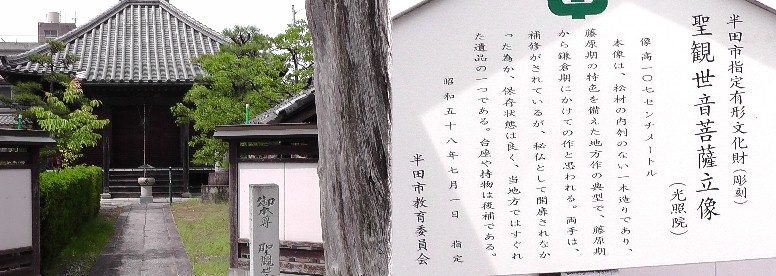 半田市指定有形文化財（彫刻）
聖観世音菩薩立像
（光照院）
像高一〇七センチメートル
本像は、松材の内刳のない一木造りであり、
藤原期の特色を備えた地方作の典型で、藤原期
から鎌倉期にかけての作と思われる。両手は、
補修がされているが、秘仏として開扉されなか
った為か、保存状態は良く、当地方ではすぐれ
た遺品の一つである。台座や持物は後補である。
昭和五十八年七月一日 指定
半田市教育委員会
御本尊 聖観世